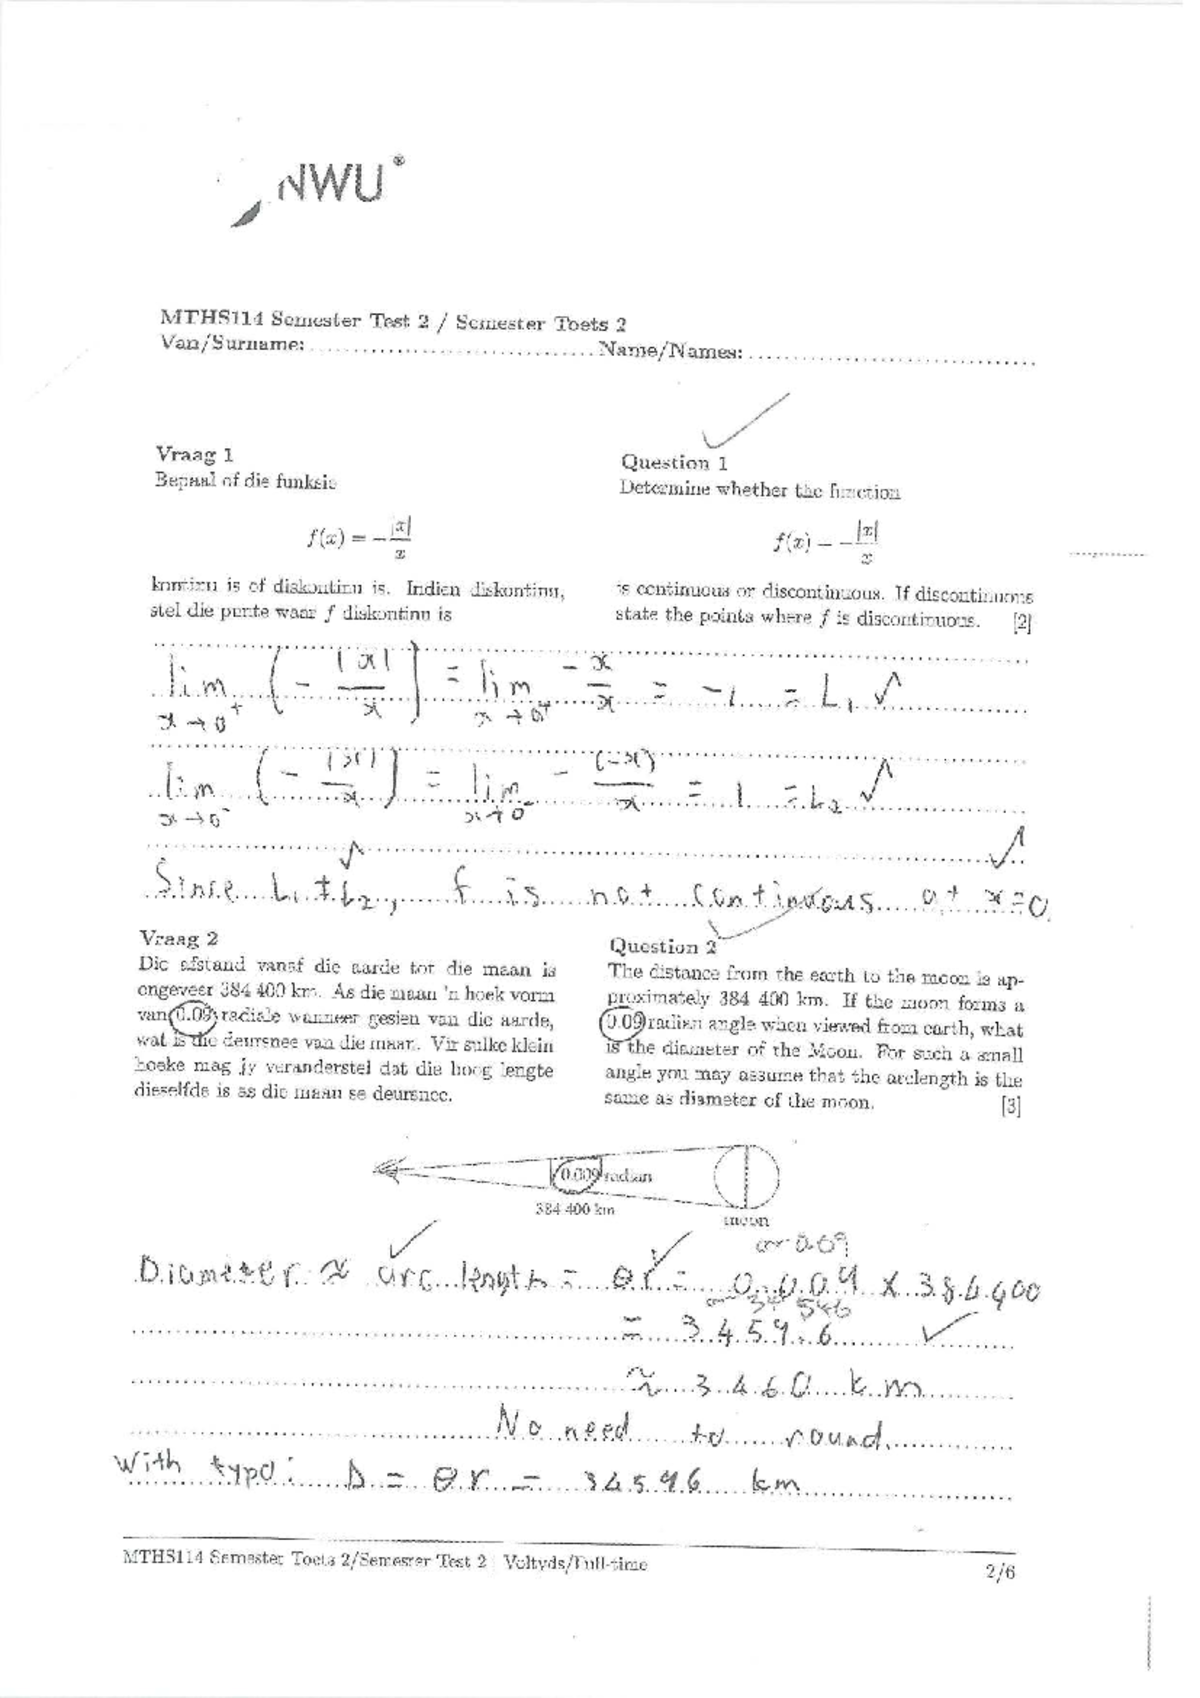 NWU®
MTHS114 Semester Test 2 / Semester Toets 2
Van/Surname: ................................ Name/Names: ................................
Vraag 1
Bepaal of die funksie
f(x) = -|x|/x
kontinu is of diskontinu is. Indien diskontinu,
stel die punte waar f diskontinu is
Question 1
Determine whether the function
f(x) = -|x|/x
is continuous or discontinuous. If discontinuous
state the points where f is discontinuous. [2]
lim x→0⁺ (-|x|/x) = lim x→0⁺ -x/x = -1 = L₁ ✓
lim x→0⁻ (-|x|/x) = lim x→0⁻ -(-x)/x = 1 = L₂ ✓
Since L₁ ≠ L₂, f is not continuous at x=0
Vraag 2
Die afstand vanaf die aarde tot die maan is
ongeveer 384 400 km. As die maan 'n hoek vorm
van 0.09 radiale wanneer gesien van die aarde,
wat is die deursnee van die maan. Vir sulke klein
hoeke mag jy veranderstel dat die boog lengte
dieselfde is as die maan se deursnee.
Question 2
The distance from the earth to the moon is ap-
proximately 384 400 km. If the moon forms a
0.09 radian angle when viewed from earth, what
is the diameter of the Moon. For such a small
angle you may assume that the arclength is the
same as diameter of the moon. [3]
0.009 radian
384 400 km
moon
or 0.09
Diameter ≈ arc length = θr = 0.009 × 384400
or 34 596
= 3459.6 ✓
≈ 3460 km
No need to round.
With typo: D = θr = 34596 km
MTHS114 Semester Toets 2/Semester Test 2 | Voltyds/Full-time
2/6